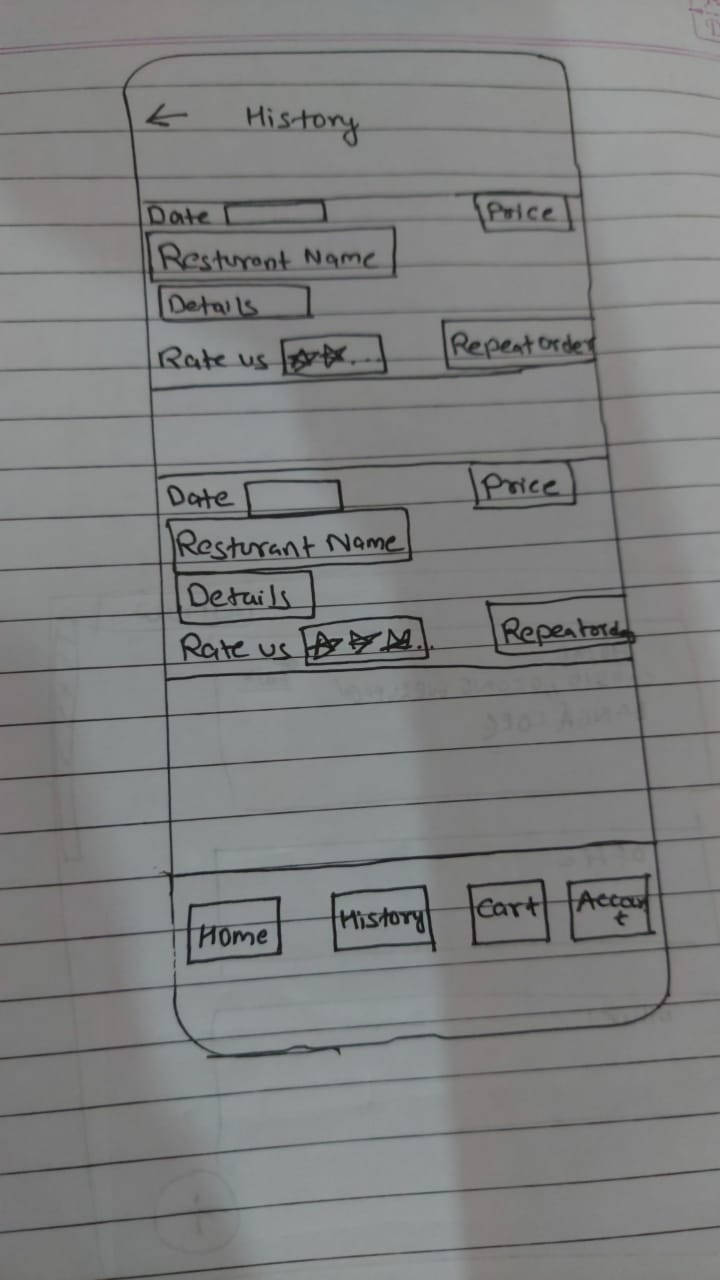 ← History
Date Price
Resturant Name
Details
Rate us ☆☆... Repeat order
Date Price
Resturant Name
Details
Rate us ☆☆☆... Repeat order
Home History Cart Account